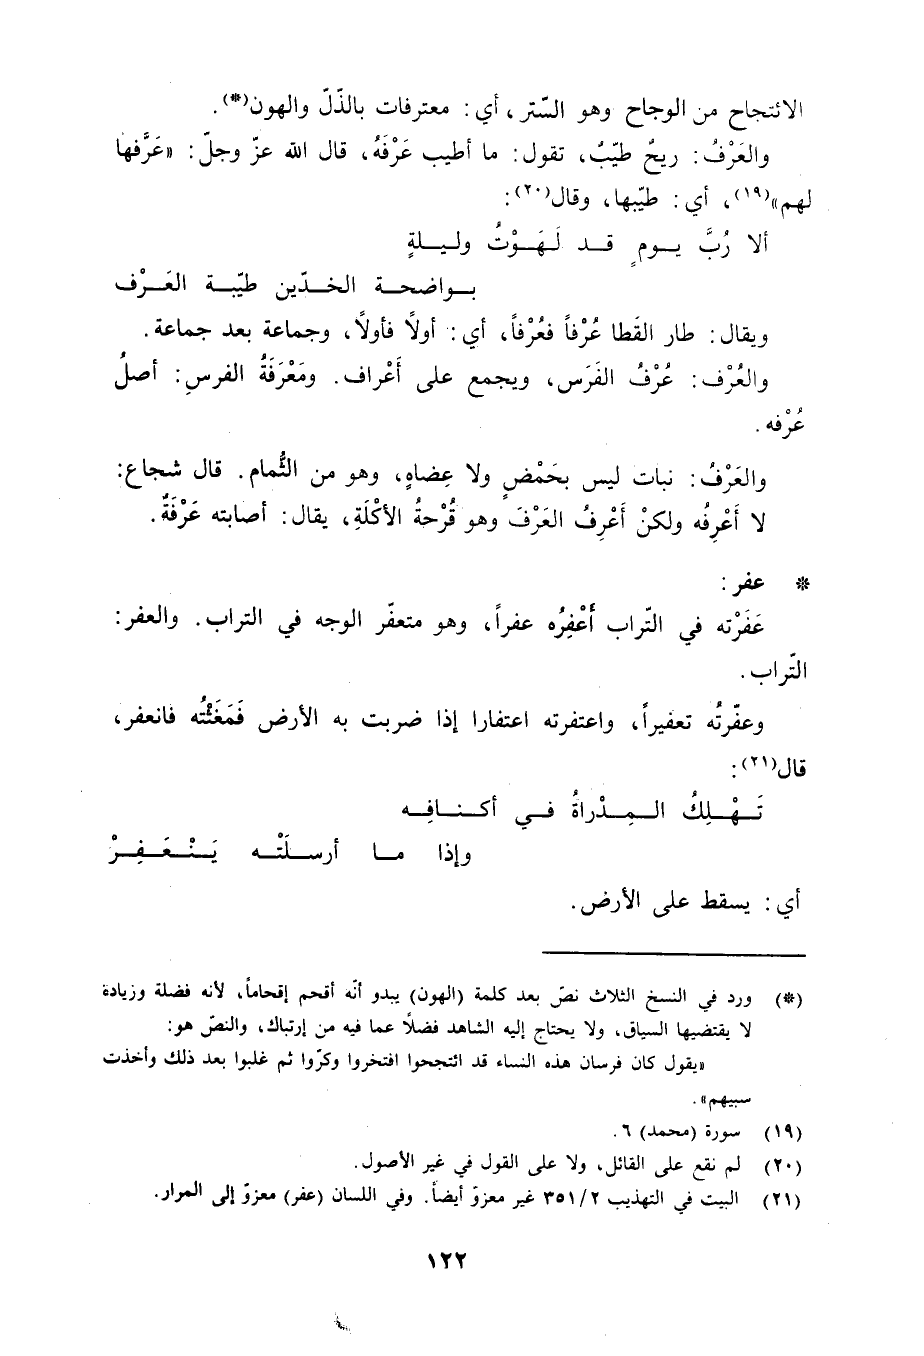 الائتجاح من الوجاح وهو السّتر، أي: معترفات بالذّلّ والهون(*).
والعَرْفُ: ريحُ طيّبٌ، تقول: ما أطيب عَرْفَهُ، قال الله عزّ وجلّ: «عَرَّفها
لهم»(١٩)، أي: طيّبها، وقال(٢٠):
ألا رُبَّ يــومٍ قــد لَهَــوْتُ وليــلةٍ
بــواضحــة الخــدّين طيّبــة العَــرْف
ويقال: طار القَطا عُرْفاً فعُرْفاً، أي: أولًا فأولًا، وجماعة بعد جماعة.
والعُرْف: عُرْفُ الفَرَس، ويجمع على أَعْراف. ومَعْرَفَةُ الفرسِ: أصلُ
عُرْفه.
والعَرْفُ: نبات ليس بحَمْضٍ ولا عِضاهٍ، وهو من الثُّمام. قال شجاع:
لا أَعْرِفُه ولكنْ أَعْرِفُ العَرْفَ وهو قُرْحةُ الأكْلَةِ، يقال: أصابته عَرْفَةٌ.
* عفر:
عَفَرْته في التّراب أَعْفِرُه عفراً، وهو متعفّر الوجه في التراب. والعفر:
التّراب.
وعفّرتُه تعفيراً، واعتفرته اعتفارا إذا ضربت به الأرض فَمَغَثْتُه فانعفر،
قال(٢١):
تَــهْــلِكُ الــمِــدْراةُ فــي أكــنــافِــه
وإذا مــا أرســلَتْــه يَــنْــعَــفِــرْ
أي: يسقط على الأرض.
(*) ورد في النسخ الثلاث نصّ بعد كلمة (الهون) يبدو أنّه أقحم إقحاماً، لأنه فضلة وزيادة
لا يقتضيها السياق، ولا يحتاج إليه الشاهد فضلًا عما فيه من إرتباك، والنصّ هو:
«يقول كان فرسان هذه النساء قد ائتجحوا افتخروا وكرّوا ثم غلبوا بعد ذلك وأخذت
سبيهم».
(١٩) سورة (محمد) ٦.
(٢٠) لم نقع على القائل، ولا على القول في غير الأصول.
(٢١) البيت في التهذيب ٢/ ٣٥١ غير معزوّ أيضاً. وفي اللسان (عفر) معزوّ إلى المرار.
١٢٢